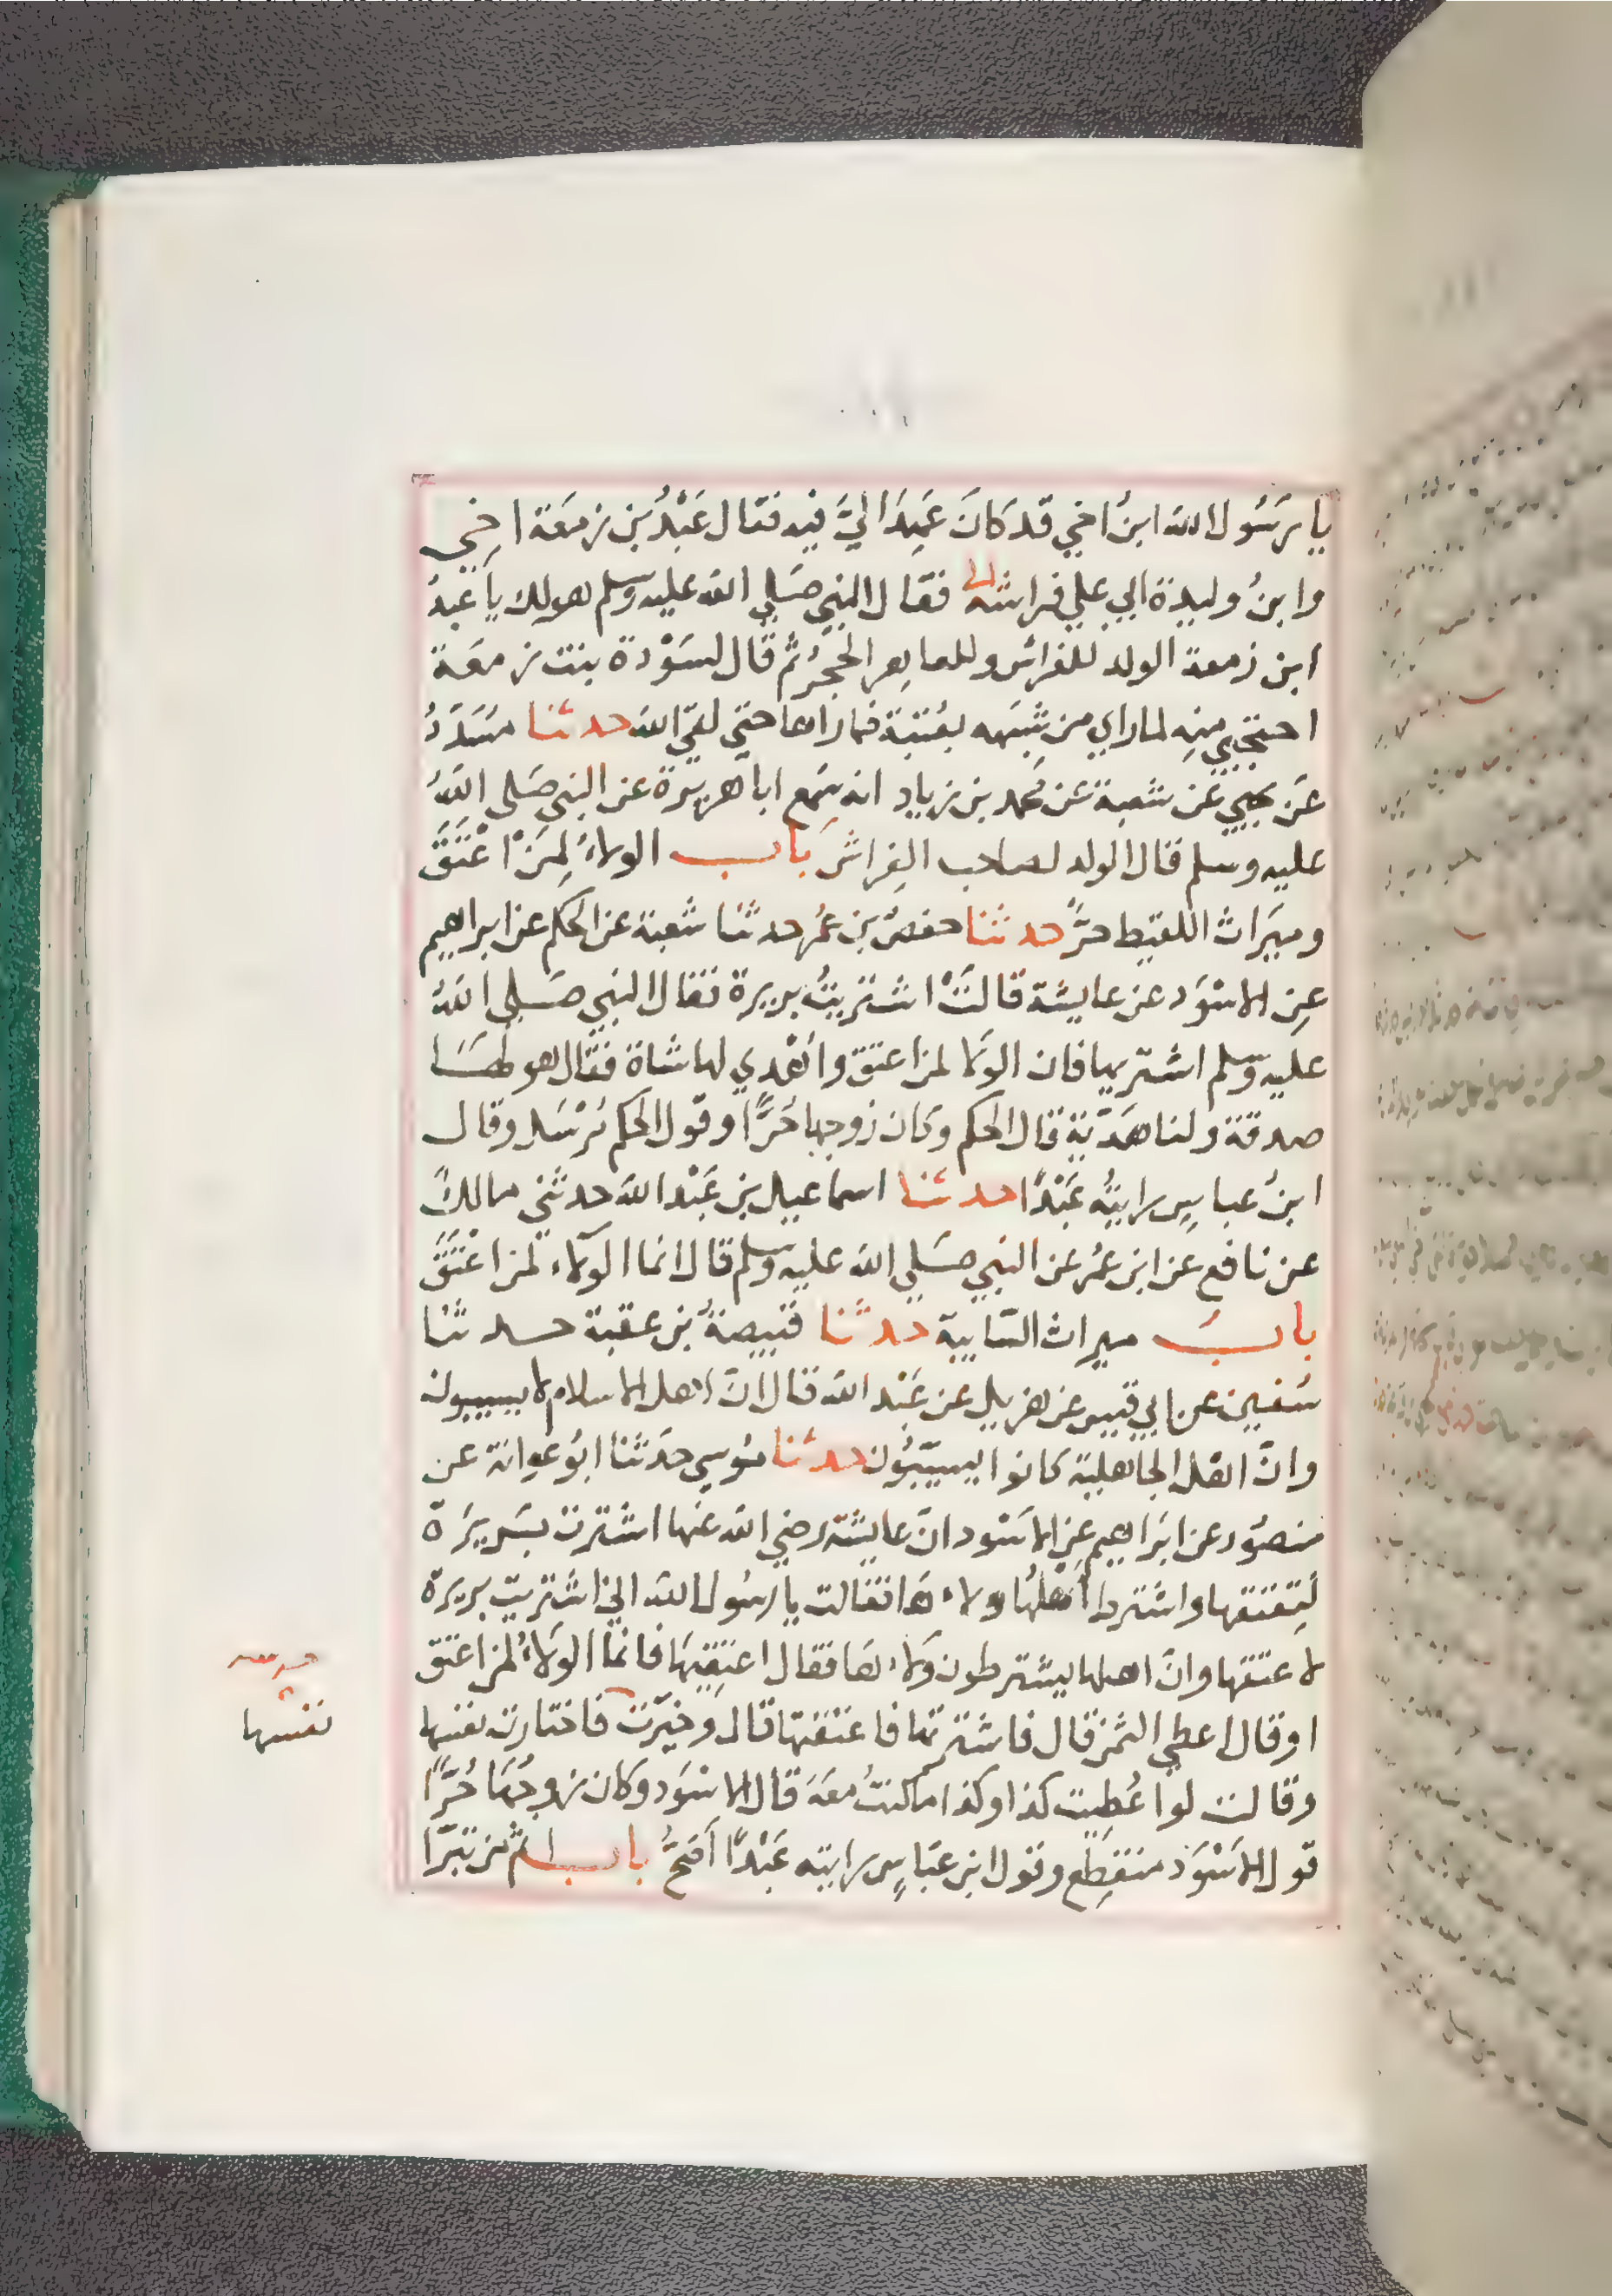 يا رَسُول الله ابنُ اخي قد كَانَ عَهِدَ اليَّ فيه فقال عَبْدُ بن زمعَة اخِي
وابنُ وليدة ابي علي فراشه فقال النبي صَلي الله عليه وسلم هو لك يا عبدُ
ابن زمعة الولد للفراش وللعاهِر الحجرُ ثم قال لسَوْدة بنت زمعَة
احتجبي منِه لما راي من شبَهه بعُتبة فما راها حتي لقي الله حدثنا مسَدَدُ
عَن يحيي عَن شعبة عَن محمد بن زياد انه سَمع ابا هريرَة عن النبي صَلي اللهُ
عليه وسلم قال الولد لصاحب الفِراش بَاب الولاءُ لِمَنْ اعْتَقَ
وميَراث اللقيط حرٌّ حدثنا حفصُ بن عمُر حدثنا شعبة عن الحكم عن ابراهيم
عِن الاسْوَد عن عايشة قالتَْ اشتريتُ بريرة فقال النبي صَلي اللهُ
عليه وسلم اشتريها فان الولَا لمن اعتق وأُهْدي لها شاة فقال هو لهَا
صدقة ولنا هَدّية قال الحكم وكان زوجها حُرًّا وقول الحكم مُرْسَل وقال
ابنُ عباسِ رايتُه عَبْدًا حدثنا اسماعيل بن عَبْد الله حدثني مالكٌ
عن نافع عن ابن عمُر عن النبي صَلي الله عليه وسلم قال انما الوَلاء لمن اعْتَقَ
بابُ ميراث السّايبة حدثنا قبيصةُ بن عقبة حدثنا
سُفيٰن عن ابي قيس عن هزيل عن عَبْد الله قال انّ اهل الاسلام لا يسيبون
وانّ اهل الجاهلية كانوا يسيّبُون حدثنا مُوسي حَدثنا ابُو عوانة عن
منصُور عن ابَراهيم عن الاسْود انّ عايشة رضي الله عنها اشترت بَريرَة
لتِعتقها واشترط أهلُها ولاءهَا فقالت يا رسُول الله اني اشتريت بريرة
لاعتقها وانّ اهلها يشترطون وَلاءها فقال اعتِقيهَا فانما الوَلاءُ لمن اعتق
او قال اعطي الثمن قال فاشترتها فاعتقتها قال وَخيّرت فاختارت نفسها
وقالت لو اعُطِيت كذا وكذا ما كنتُ معَهَ قال الاسْوَد وكان زوجُهَا حُرًّا
قول الاسْوَد منقطِع وقول ابن عبَاسٍ رايته عَبْدًا اَصَحُّ باب اثم من تبرّا
نفسها